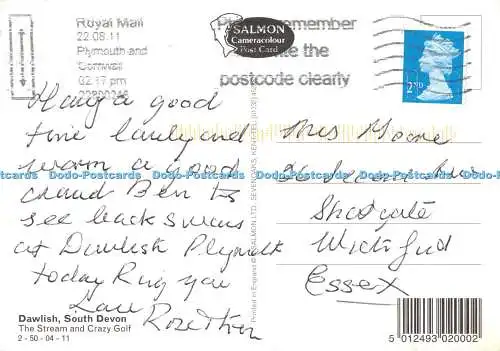 Royal Mail
22.08.11
Plymouth and
Cornwall
02:17 pm
SALMON
Cameracolour
Post Card
remember
the
postcode clearly
2ND
Having a good
time lovely and
warm a good
crowd Ben to
see black swans
at Dawlish Plymouth
today Ring you
Love
Mrs Moore
Shotgate
Wickford
Essex
Dodo-Postcards Dodo-Postcards Dodo-Postcards Dodo-Postcards Dodo-Postcards
Printed in England © J SALMON LTD., SEVENOAKS, KENT
Dawlish, South Devon
The Stream and Crazy Golf
2 - 50 - 04 - 11
5 012493 020002